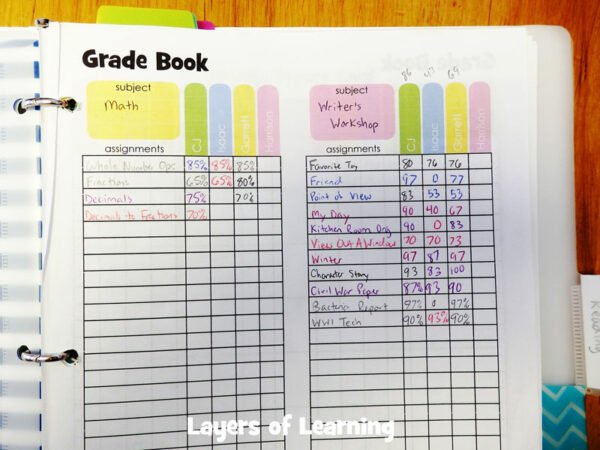 Grade Book
subject
Math
CJ Isaac Garrett Harrison
assignments
Whole Number Ops 85% 85% 85%
Fractions 65% 65% 80%
Decimals 75% 70%
Decimals to Fractions 70%
86 47 69
subject
Writer's
Workshop
CJ Isaac Garrett Harrison
assignments
Favorite Toy 80 76 76
Friend 97 0 77
Point of View 83 53 53
My Day 90 40 67
Kitchen Room Org 90 0 83
View Out A Window 70 70 73
Winter 97 87 97
Character Story 93 83 100
Civil War Paper 87% 93 90
Bacteria Report 97% 0 97%
WWI Tech 90% 93% 90%
Reading
Layers of Learning